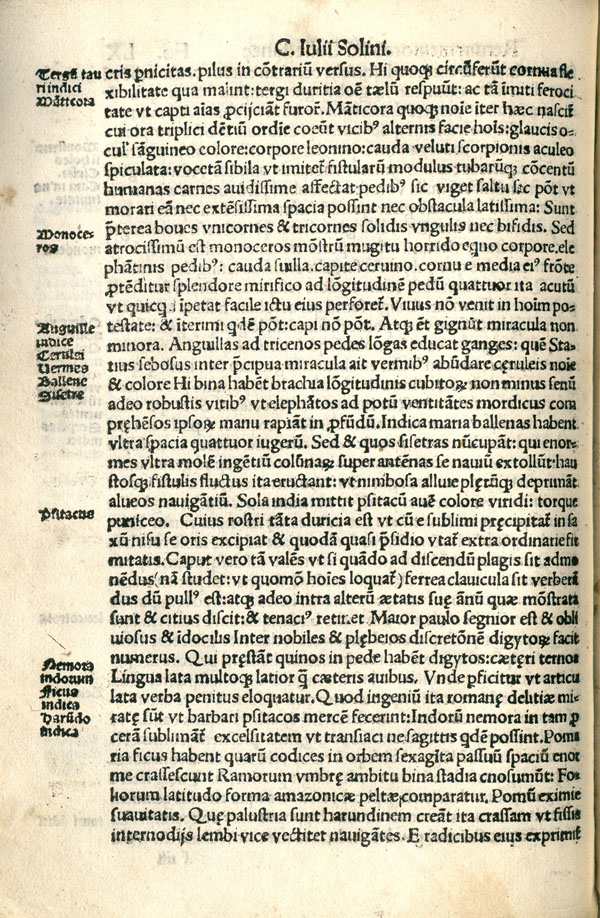 C. Iulii Solini.
Tergū tau
ri indici
Māticora
cris ꝑnicitas. pilus in cōtrariū versus. Hi quoqꝫ circūferūt cornua fle
xibilitate qua malunt: tergi duritia oē telū respuūt: ac tā imiti feroci
tate vt capti aīas ꝓcijciāt furor̄. Māticora quoqꝫ noīe īter hæc nascit̄
cui ora triplici dētiū ordīe coeūt vicibꝰ alternis facie hoīs: glaucis o⸗
culꝭ sāguineo colore: corpore leonino: cauda veluti scorpionis aculeo
spiculata: voce tā sibila vt imitet̄ fistularū modulus tubarūqꝫ cōcentū
humanas carnes auidissime affectat: pedibꝰ sic viget saltu sic pōt vt
morari eā nec extēsissima spacia possint nec obstacula latissima: Sunt
Monoce⸗
ros
p̄terea boues vnicornes & tricornes solidis vngulis nec bifidis. Sed
atrocissimū est monoceros mōstrū mugitu horrido equo corpore. ele
phātinis pedibꝰ: cauda suilla. capite ceruino. cornu e media eiꝰ frōte
p̄tēditur splendore mirifico ad lōgitudinē pedū quattuor ita acutū
vt quicqͥ īpetat facile ictu eius perforet̄. Viuus nō venit in hoīm po⸗
Anguille
indice
Cerulei
Vermes
Ballene
Sisetre
testate: & īterimi qdē pōt: capi nō pōt. Atqꝫ et gignūt miracula non
minora. Anguillas ad tricenos pedes lōgas educat ganges: quē Sta⸗
tius sebosus inter p̄cipua miracula ait vermibꝰ abūdare cęruleis noīe
& colore Hi bina habēt brachia lōgitudinis cubitoꝝ non minus senū
adeo robustis viribꝰ vt elephātos ad potū ventitātes mordicus com
pręhēsos ipsoꝝ manu rapiāt in ꝓfūdū. Indica maria ballenas habent
vltra spacia quattuor iugerū. Sed & quos sisetras nūcupāt: qui enor⸗
mes vltra molē ingētiū colūnaꝝ super antēnas se nauiū extollūt: hau
stosqꝫ fistulis fluctus ita eructant: vt nimbosa alluuie plerūqꝫ deprimāt
alueos nauigātiū. Sola india mittit psitacū auē colore viridi: torque
Psitacus
puniceo. Cuius rostri tāta duricia est vt cū e sublimi pręcipitat̄ in sa
xū nisu se oris excipiat & quodā quasi p̄sidio vtat̄ extra ordinarie fir
mitatis. Caput vero tā valēs vt si quādo ad discendū plagis sit admo
nēdus (nā studet: vt quomō hoīes loquat̄) ferrea clauicula sit verberā
dus dū pullꝰ est: atqꝫ adeo intra alterū ætatis suę ānū quæ mōstrata
sunt & citius discit: & tenaciꝰ retinet. Maior paulo segnior est & obli
uiosus & īdocilis Inter nobiles & plębeios discretōnē digytoꝝ facit
Nemora
indorum
Ficus
indica
Harūdo
indica
numerus. Qui pręstāt quinos in pede habēt digytos: cæteri ternos
Lingua lata multoqꝫ latior q̄ cæteris auibus. Vnde ꝑficitur vt articu
lata verba penitus eloquatur. Quod ingeniū ita romanę delitiæ mi⸗
ratę sūt vt barbari psitacos mercē fecerint: Indorū nemora in tam ꝓ
cerā sublimāt̄ excelsitatem vt transiaci ne sagittis qdē possint. Poma
ria ficus habent quarū codices in orbem sexagīta passuū spaciū enor
me crassescunt Ramorum vmbrę ambitu bina stadia cnosumūt: Fo⸗
liorum latitudo forma amazonicæ peltæ comparatur. Pomū eximie
suauitatis. Quę palustria sunt harundinem creāt ita crassam vt fissis
internodijs lembi vice vectitet nauigātes. E radicibus eius exprimit̄